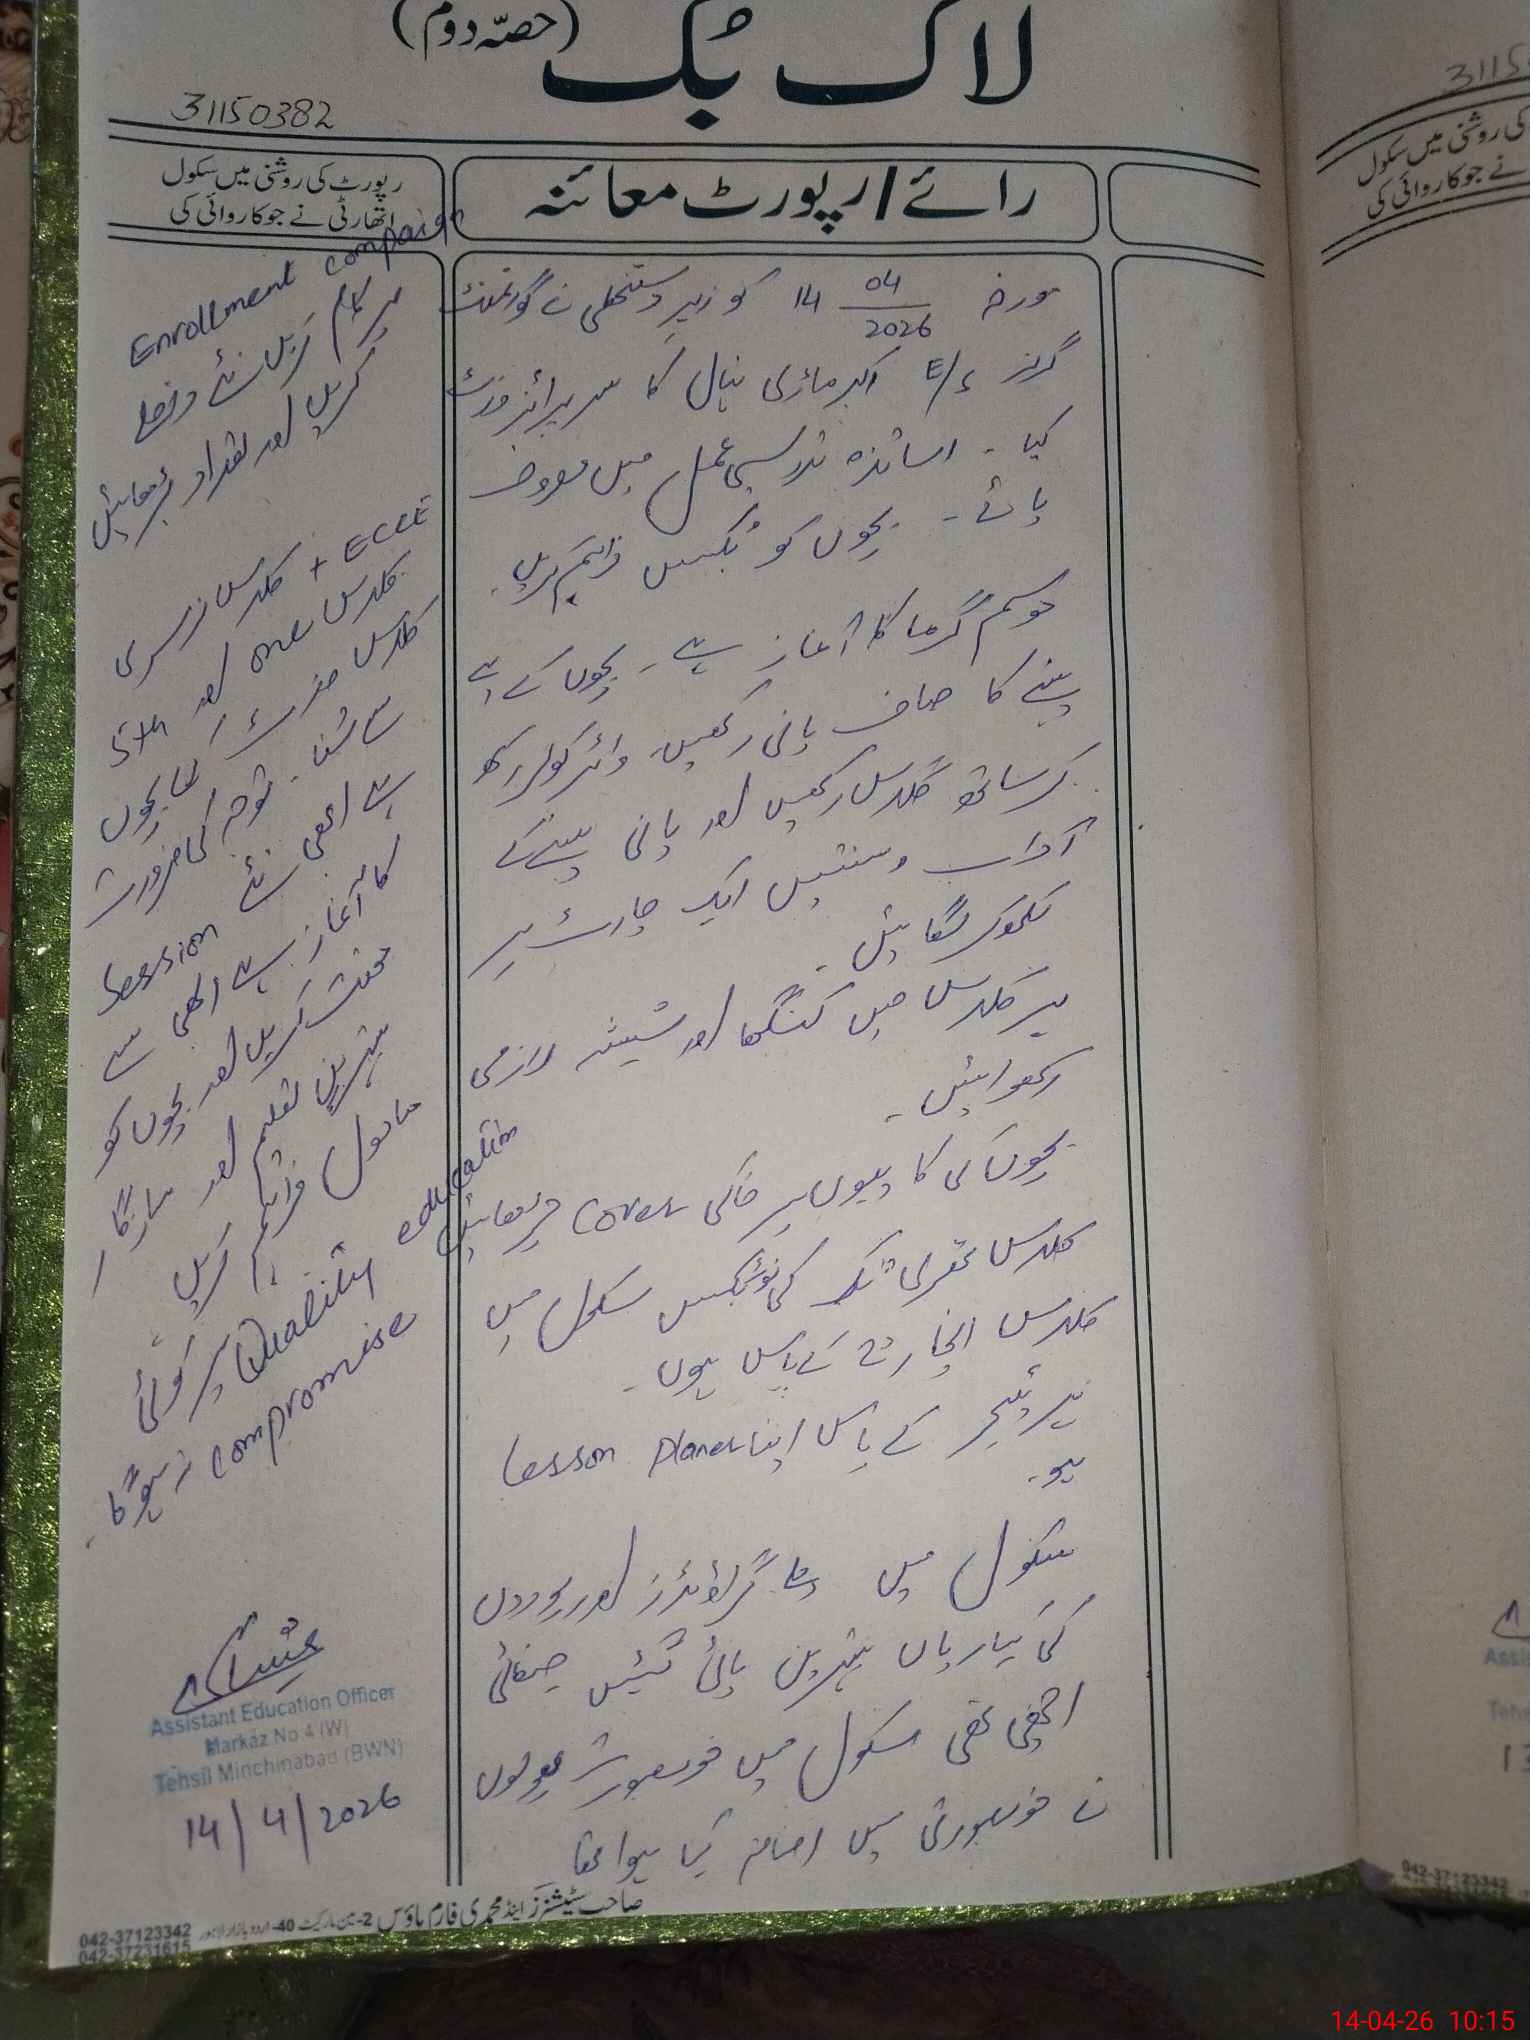 لاگ بُک (حصّہ دوم)
31150382
رائے / رپورٹ معائنہ
رپورٹ کی روشنی میں سکول
اتھارٹی نے جو کاروائی کی
مورخہ 14 04/2026 کو زیرِ دستخطی نے گورنمنٹ
گرلز E/S اکبر ماڑی نہال کا سرپرائز وزٹ
کیا ۔ اساتذہ تدریسی عمل میں مصروف
پائے ۔ بچوں کو بُکس فراہم کریں ۔
موسم گرما کا آغاز ہے ۔ بچوں کے لئے
پینے کا صاف پانی رکھیں ۔ واٹر کولر رکھ
کر ساتھ گلاس رکھیں اور پانی پینے کے
آداب و سنتیں ایک چارٹ پر
لکھوا کر لگائیں ۔
ہر کلاس میں کنگھا اور شیشہ لازمی
رکھوائیں ۔
بچوں کی کاپیوں پر خاکی cover چڑھائیں
کلاس تھری تک کی نوٹ بکس سکول میں
کلاس انچارج کے پاس ہوں ۔
ہر ٹیچر کے پاس اپنا Lesson Planer
ہو ۔
سکول میں گراؤنڈز اور پودوں
کی کیاریاں بہترین پائی گئیں صفائی
اچھی تھی سکول میں خوبصورت پھولوں
نے خوبصورتی میں اضافہ کیا ہوا تھا
Enrollment compaign
پر کام کریں نئے داخلے
کریں اور تعداد بڑھائیں
ECCE + کلاس نرسری
کلاس one اور 5th
کلاس وزٹ کیا بچوں
سے سُنا ۔ توجہ کی ضرورت
ہے ابھی نئے Session
کا آغاز ہے ابھی سے
محنت کریں اور بچوں کو
بہترین تعلیم اور سازگار
ماحول فراہم کریں
Quality education پر کوئی
compromise نہ ہو گا ۔
Assistant Education Officer
Markaz No 4 (W)
Tehsil Minchinabad (BWN)
14/4/2026
صاحب سٹیشنرز اینڈ محمدی فارم ہاؤس 2-مین مارکیٹ 40-اردو بازار لاہور
042-37123342
042-37231615
14-04-26 10:15